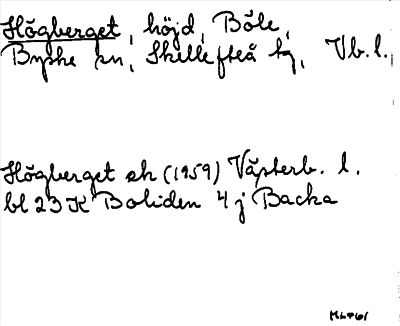 Högberget, höjd, Böle,
Byske sn, Skellefteå tg, Vb. l.
Högberget ek (1959) Västerb. l.
bl 23 K Boliden 4 j Backa